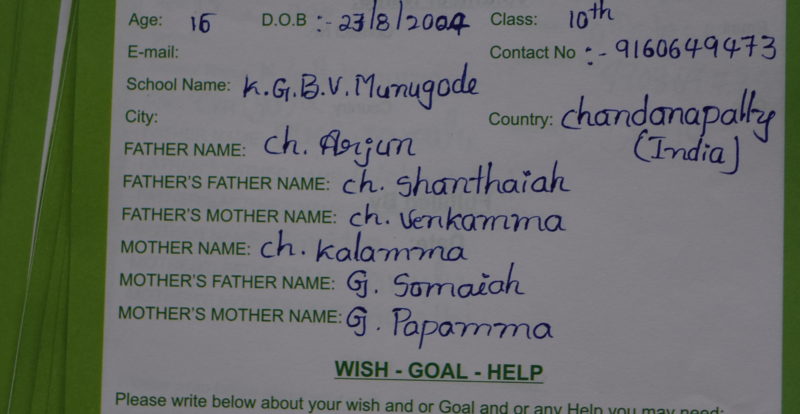 Age: 15 D.O.B :- 23/8/2004 Class: 10th
E-mail: Contact No :- 9160649473
School Name: K.G.B.V. Munugode
City: Country: chandanapally
(India)
FATHER NAME: ch. Arjun
FATHER'S FATHER NAME: ch. shanthaiah
FATHER'S MOTHER NAME: ch. venkamma
MOTHER NAME: ch. kalamma
MOTHER'S FATHER NAME: G. Somaiah
MOTHER'S MOTHER NAME: G. Papamma
WISH - GOAL - HELP
Please write below about your wish and or Goal and or any Help you may need: